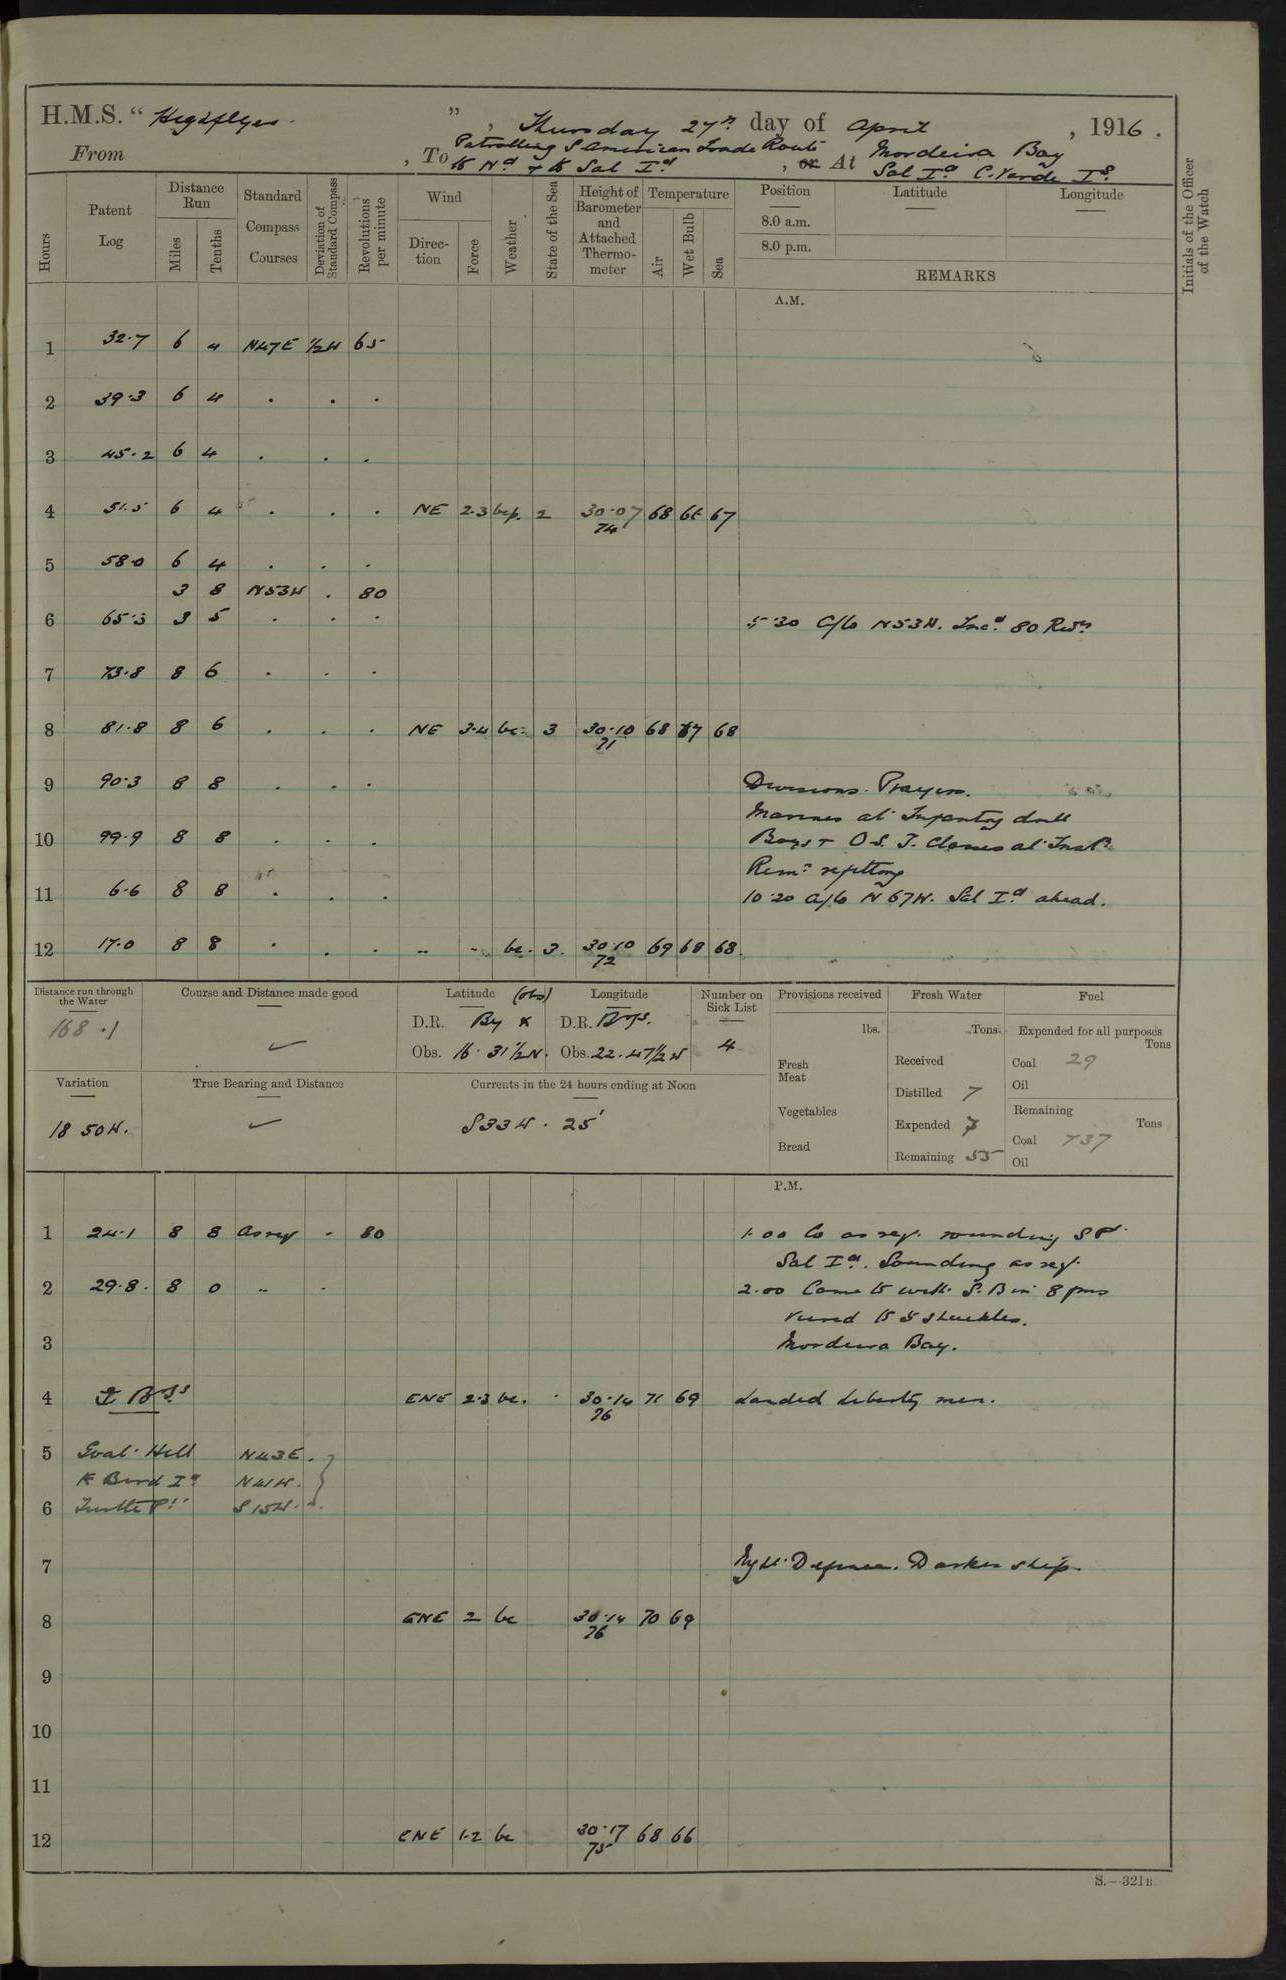 H.M.S. " Highflyer ", Thursday 27th day of April, 1916.
From , To Patrolling S American Trade Route
to Nd & to Sal Id , or At Mordeira Bay
Sal Id C. Verde Is
Hours Patent Log Distance Run Miles Tenths Standard Compass Courses Deviation of Standard Compass Revolutions per minute Wind Direction Force Weather State of the Sea Height of Barometer and Attached Thermometer Temperature Air Wet Bulb Sea Position Latitude Longitude Initials of the Officer of the Watch
8.0 a.m.
8.0 p.m.
REMARKS
A.M.
1 32.7 6 4 N47E 1/2W 65
2 39.3 6 4 . . .
3 45.2 6 4 . . .
4 51.5 6 4 . . . NE 2.3 bcp. 2 30.07 68 66 67
74
5 58.0 6 4 . . .
3 8 N53W . 80
6 65.3 3 5 . . . 5.30 A/c N53W. Incd 80 Revs
7 73.8 8 6 . . .
8 81.8 8 6 . . . NE 3.4 bc. 3 30.10 68 67 68
71
9 90.3 8 8 . . . Divisions. Prayers.
Marines at Infantry drill
10 99.9 8 8 . . . Boys & O.S. T. classes at Instn.
Remr refitting
11 6.6 8 8 . . . 10.20 a/c N 67W. Sal Id ahead.
12 17.0 8 8 . . . .. - bc. 3. 30.10 69 68 68.
72
Distance run through the Water Course and Distance made good Latitude (obs) Longitude Number on Sick List Provisions received Fresh Water Fuel
168.1 D.R. By * D.R. Brgs. lbs. Tons Expended for all purposes Tons
Obs. 16. 31 1/2N. Obs. 22.47 1/2 W 4 Fresh Meat Received Coal 29
Variation True Bearing and Distance Currents in the 24 hours ending at Noon Distilled 7 Oil
18 50W. S33W. 25' Vegetables Expended 7 Remaining Tons
Bread Remaining 55 Coal 737
Oil
P.M.
1 24.1 8 8 as req . 80 1.00 Co as req. rounding S Pt.
Sal Id. Sounding as req.
2 29.8. 8 0 .. . 2.00 Came to with S.B in 8 fms
veered to 5 shackles.
3 Mordeira Bay.
4 Brgs ENE 2.3 bc. 30.14 71 69 Landed Liberty men.
76
5 Goat Hill N43E.
Bird Id N41W.
6 Turtle Pt S15W.
7 Night Defence. Darken ship.
8 ENE 2 bc 30.14 70 69
76
9
10
11
12 ENE 1.2 bc 30.17 68 66
75
S.—321B